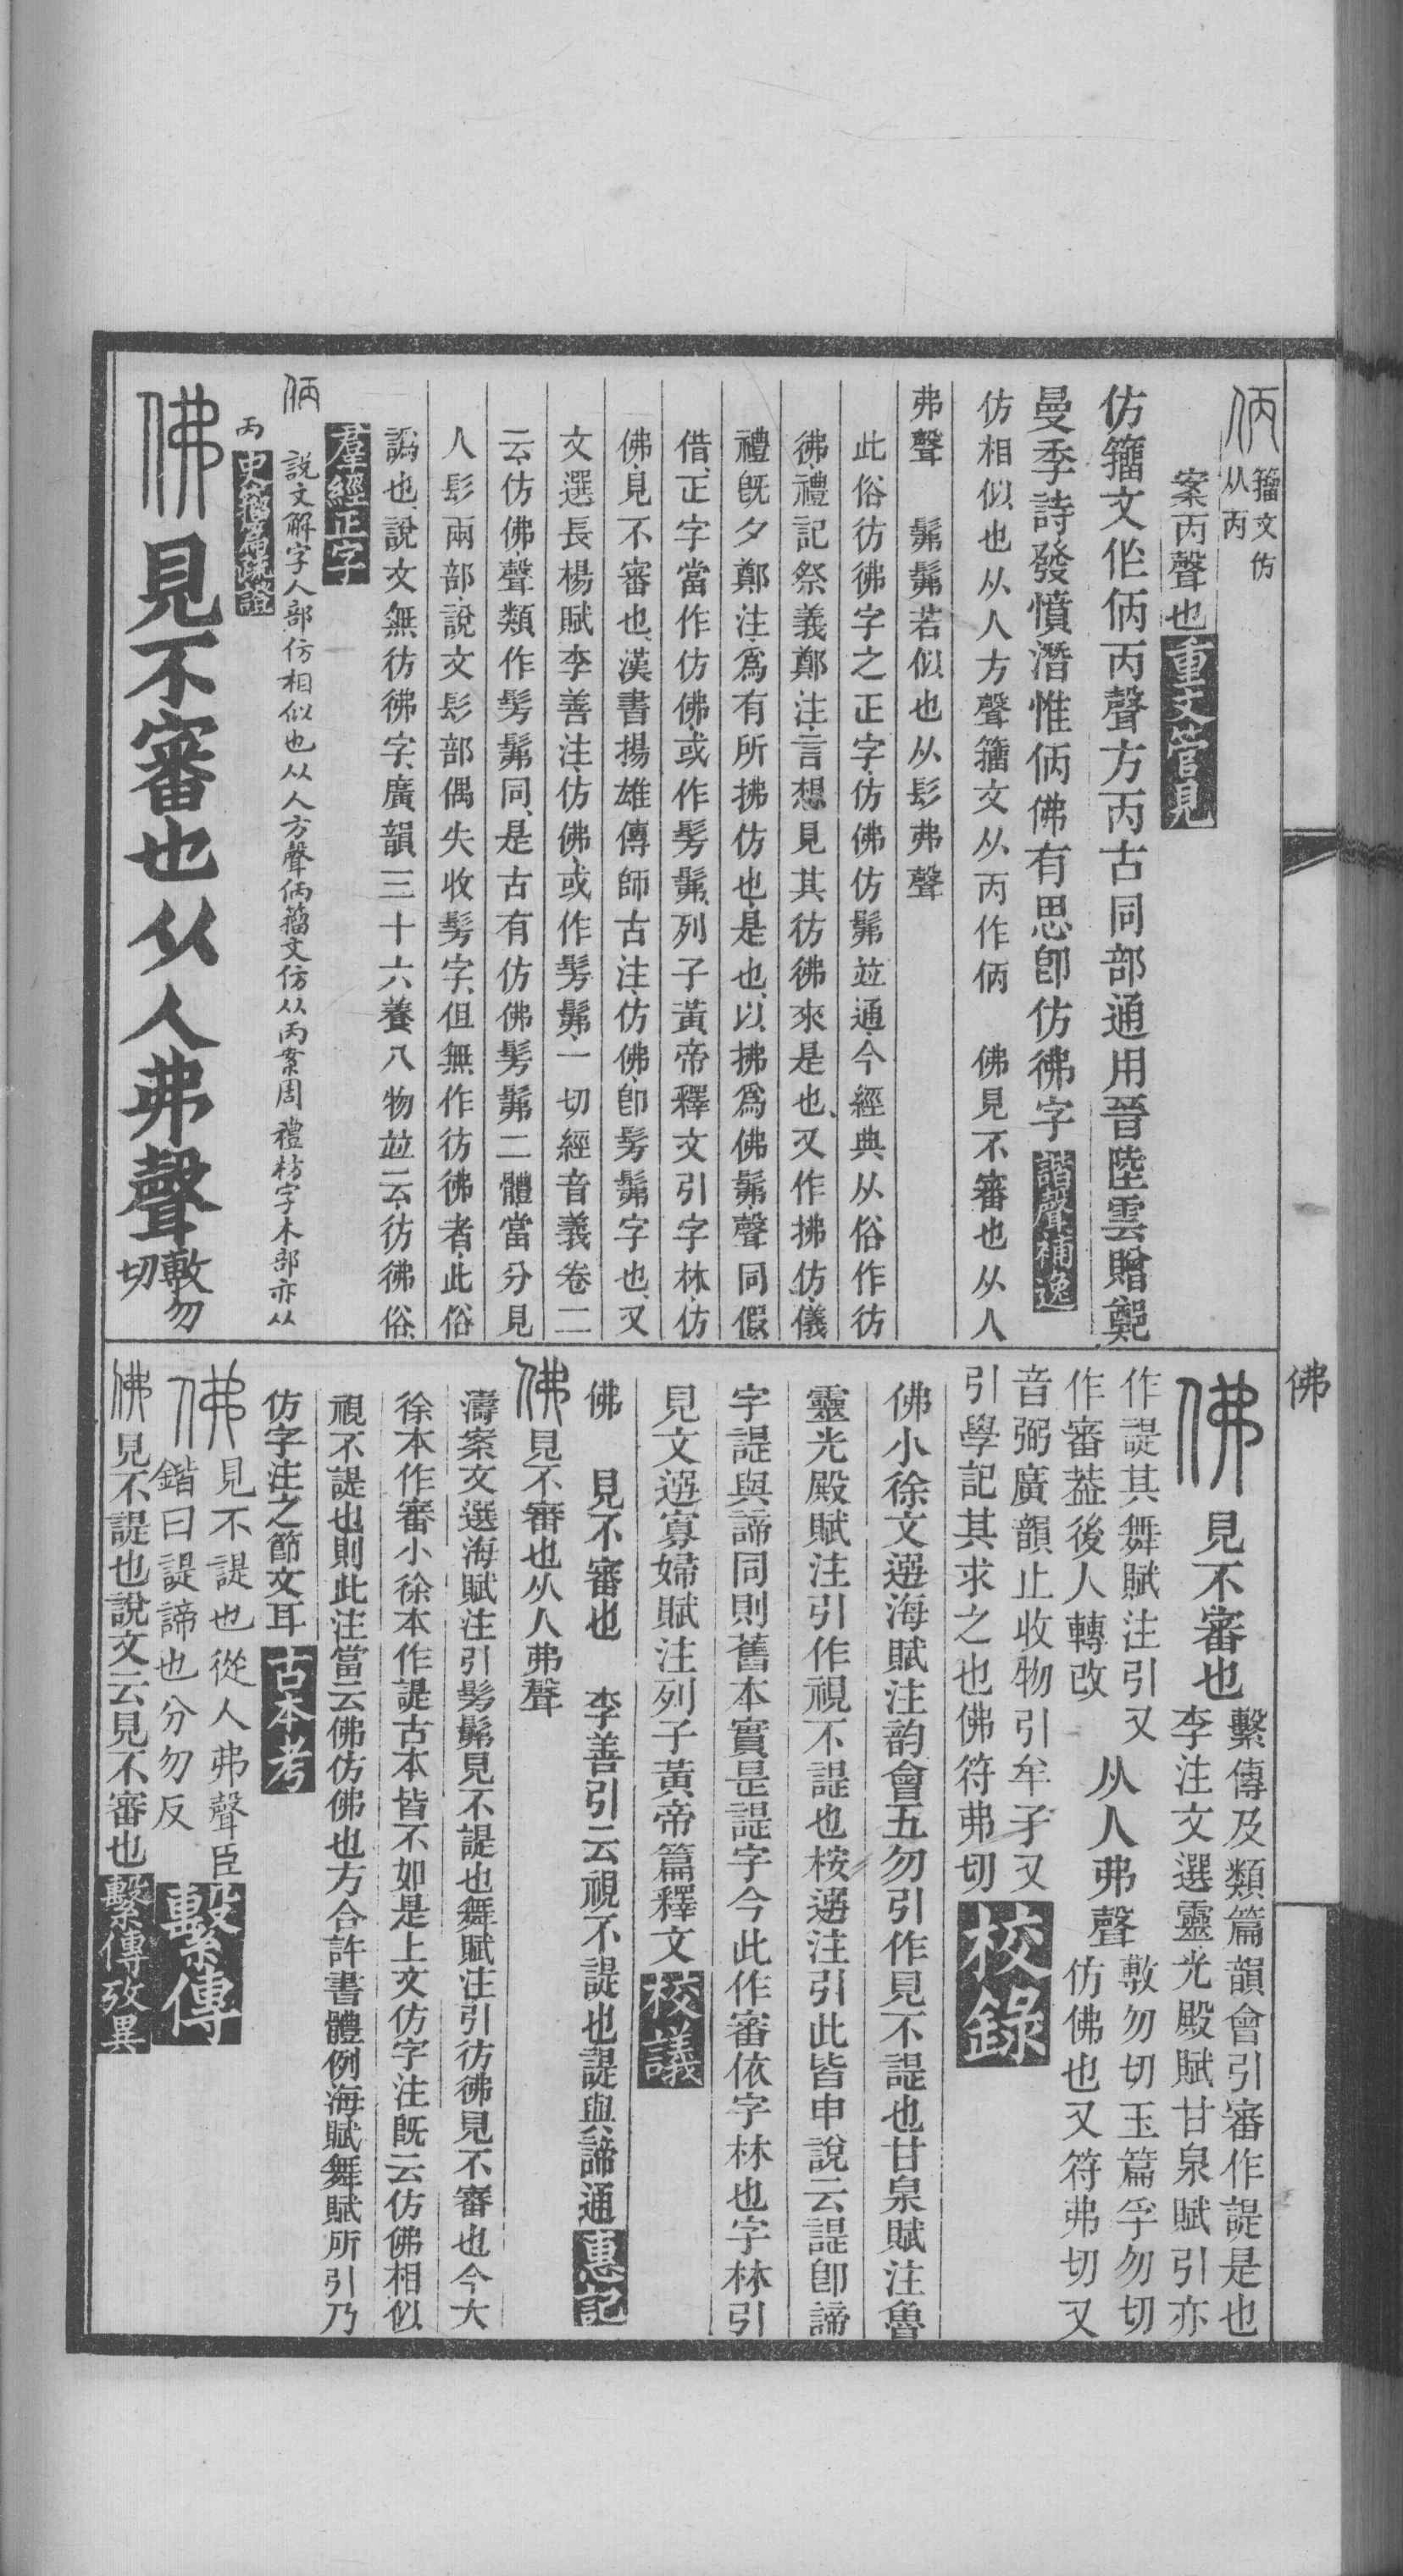 佛
㑂 籀文仿
从丙
案丙聲也 重文管見
仿籀文作㑂丙聲方丙古同部通用晉陸雲贈鄭
曼季詩發憤潛惟㑂佛有思卽仿彿字 諧聲補逸
仿相似也从人方聲籀文从丙作㑂　佛見不審也从人
弗聲　髴髴若似也从髟弗聲
此俗彷彿字之正字仿佛仿髴竝通今經典从俗作彷
彿禮記祭義鄭注言想見其彷彿來是也又作拂仿儀
禮旣夕鄭注爲有所拂仿也是也以拂爲佛髴聲同假
借正字當作仿佛或作髣髴列子黃帝釋文引字林仿
佛見不審也漢書揚雄傳師古注仿佛卽髣髴字也又
文選長楊賦李善注仿佛或作髣髴一切經音義卷二
云仿佛聲類作髣髴同是古有仿佛髣髴二體當分見
人髟兩部說文髟部偶失收髣字但無作彷彿者此俗
譌也說文無彷彿字廣韻三十六養八物竝云彷彿俗
羣經正字
㑂 說文解字人部仿相似也从人方聲㑂籀文仿从丙案周禮枋字木部亦从
丙 史籀篇疏證
佛 見不審也从人弗聲 敷勿
切
佛 見不審也 繫傳及類篇韻會引審作諟是也
李注文選靈光殿賦甘泉賦引亦
作諟其舞賦注引又
作審葢後人轉改 从人弗聲 敷勿切玉篇孚勿切
仿佛也又符弗切又
音弼廣韻止收物引牟矛又
引學記其求之也佛符弗切 校錄
佛小徐文選海賦注韵會五勿引作見不諟也甘泉賦注魯
靈光殿賦注引作視不諟也桉選注引此皆申說云諟卽諦
字諟與諦同則舊本實是諟字今此作審依字林也字林引
見文選寡婦賦注列子黃帝篇釋文 校議
佛　見不審也　李善引云視不諟也諟與諦通 惠記
佛 見不審也从人弗聲
濤案文選海賦注引髣髴見不諟也舞賦注引彷彿見不審也今大
徐本作審小徐本作諟古本皆不如是上文仿字注旣云仿佛相似
視不諟也則此注當云佛仿佛也方合許書體例海賦舞賦所引乃
仿字注之節文耳 古本考
佛 見不諟也從人弗聲臣
鍇曰諟諦也分勿反 繫傳
佛 見不諟也說文云見不審也 繫傳攷異